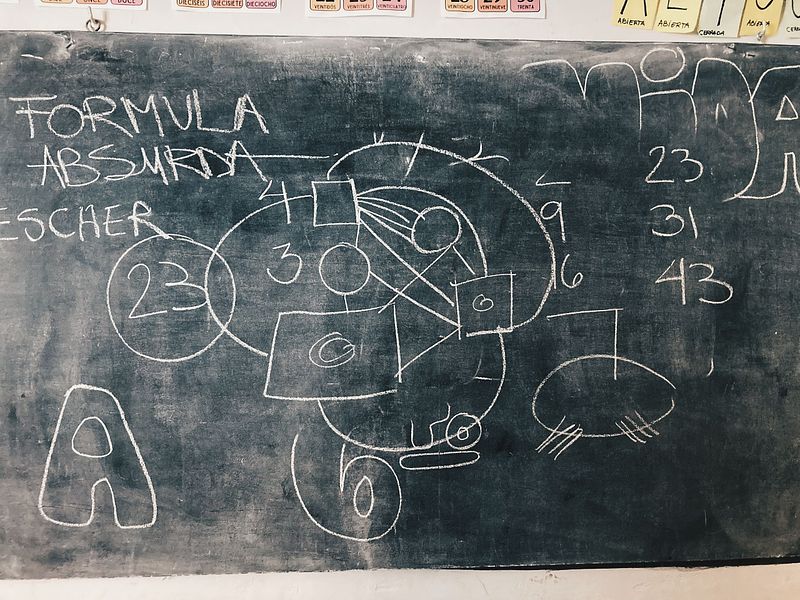 ONCE DOCE
DIECISÉIS DIECISIETE DIECIOCHO
22 23 24
VEINTIDÓS VEINTITRÉS VEINTICUATRO
28 29 30
VEINTIOCHO VEINTINUEVE TREINTA
ABIERTA ABIERTA CERRADA ABIERTA
FORMULA
ABSURDA
ESCHER
23
4
3
9
6
23
31
43
A
6